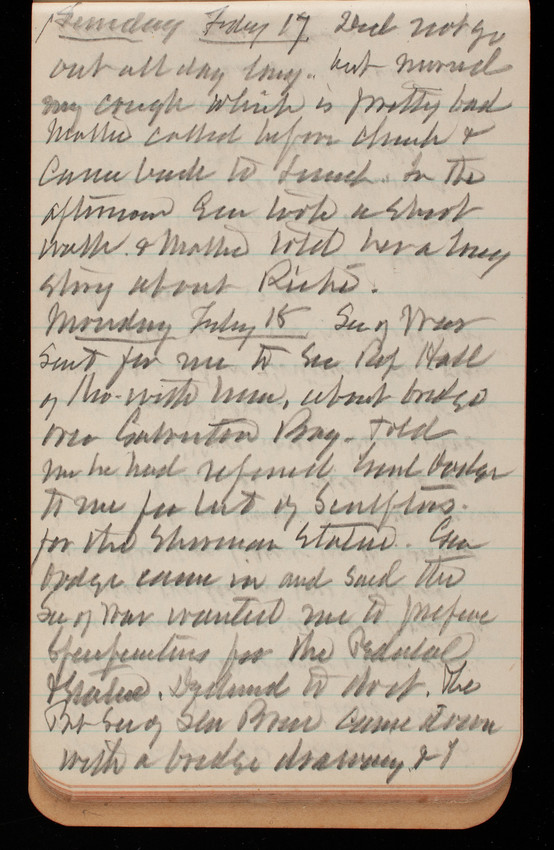 Sunday Feby 17 Did not go
out all day long.. but nursed
my cough which is pretty bad
Mattie called before church &
came back to lunch. In the
afternoon Em took a short
walk. & Mattie told her a long
story about Riché.
Monday Feby 18 Sec of War
sent for me to see Rep Hall
of Mo. with him, about bridge
over Galveston Bay. Told
me he had referred Genl Dodge
to me for list of Sculptors.
for the Sherman Statue. Gen
Dodge came in and said the
Sec of War wanted me to prepare
specifications for the Pedestal
& Statue. Declined to do it. The
Sec of came down
with a bridge drawing & I